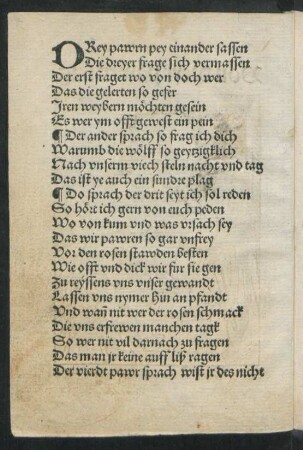 DRey pawrn pey einander sassen
Die dreyer frage sich vermassen
Der erst fraget wo von doch wer
Das die gelerten so gefer
Jren weybern möchten gesein
Es wer ym offt gewest ein pein
¶ Der ander sprach so frag ich dich
Warumb die wölff so geytzigklich
Nach vnserm viech steln nacht vnd tag
Das ist ye auch ein sundre plag
¶ Do sprach der drit seyt ich sol reden
So hört ich gern von euch peden
Wo von kum vnd was vrsach sey
Das wir pawren so gar vnfrey
Vor den rosen stawden besten
Wie offt vnd dick wir für sie gen
Zu reyssens vns vnser gewandt
Lassen vns nymer hin an pfandt
Vnd wañ nit wer der rosen schmack
Die vns erfrewen manchen tagk
So wer nit vil darnach zu fragen
Das man jr keine auff liß ragen
Der vierdt pawr sprach wist jr des nicht